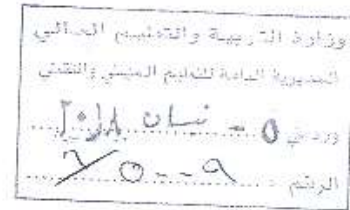 وزارة التربية والتعليم العالي
المديرية العامة للتعليم المهني والتقني
ورد في 5 - نيسان 2018
الرقم :